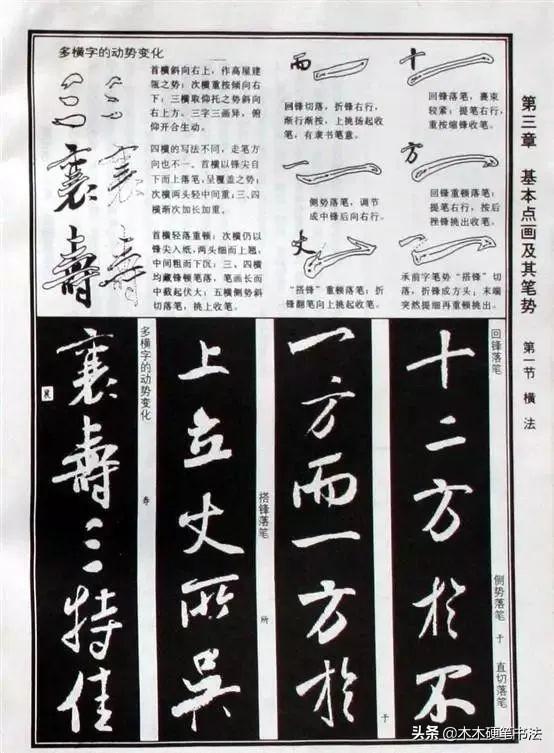 第三章　基本点画及其笔势　第一节　横法
多横字的动势变化
首横斜向右上，作高屋建
瓴之势；次横重按倾向右
下；三横取仰托之势斜向
右上方。三字三画异，俯
仰开合生动。
襄
四横的写法不同，走笔方
向也不一。首横以锋尖自
下而上落笔，呈覆盖之势；
次横两头轻中间重；三、四
横渐次加长加重。
壽
首横轻落重顿；次横仍以
锋尖入纸，两头细而上翘，
中间粗而下沉；三、四横
均藏锋顿笔落，笔画长而
中截起伏大；五横侧势斜
切落笔，挑上收笔。
而
回锋切落，折锋右行，
渐行渐按，上挑扬起收
笔，有隶书笔意。
一
侧势落笔，调节
成中锋后向右行。
丈
“搭锋”重顿落笔；折
锋翻笔向上挑起收笔。
十
回锋落笔，裹束
较紧；提笔右行，
重按缩锋收笔。
方
回锋重顿落笔；
提笔右行，按后
挫锋挑出收笔。
承前字笔势“搭锋”切
落，折锋成方头；末端
突然提细再重顿挑出。
回锋落笔
侧势落笔　于　直切落笔
十二方於不
一方而一方於
于
搭锋落笔
所
上立丈所吴
多横字的动势变化
寿
襄壽三特佳
头条@木木硬笔书法